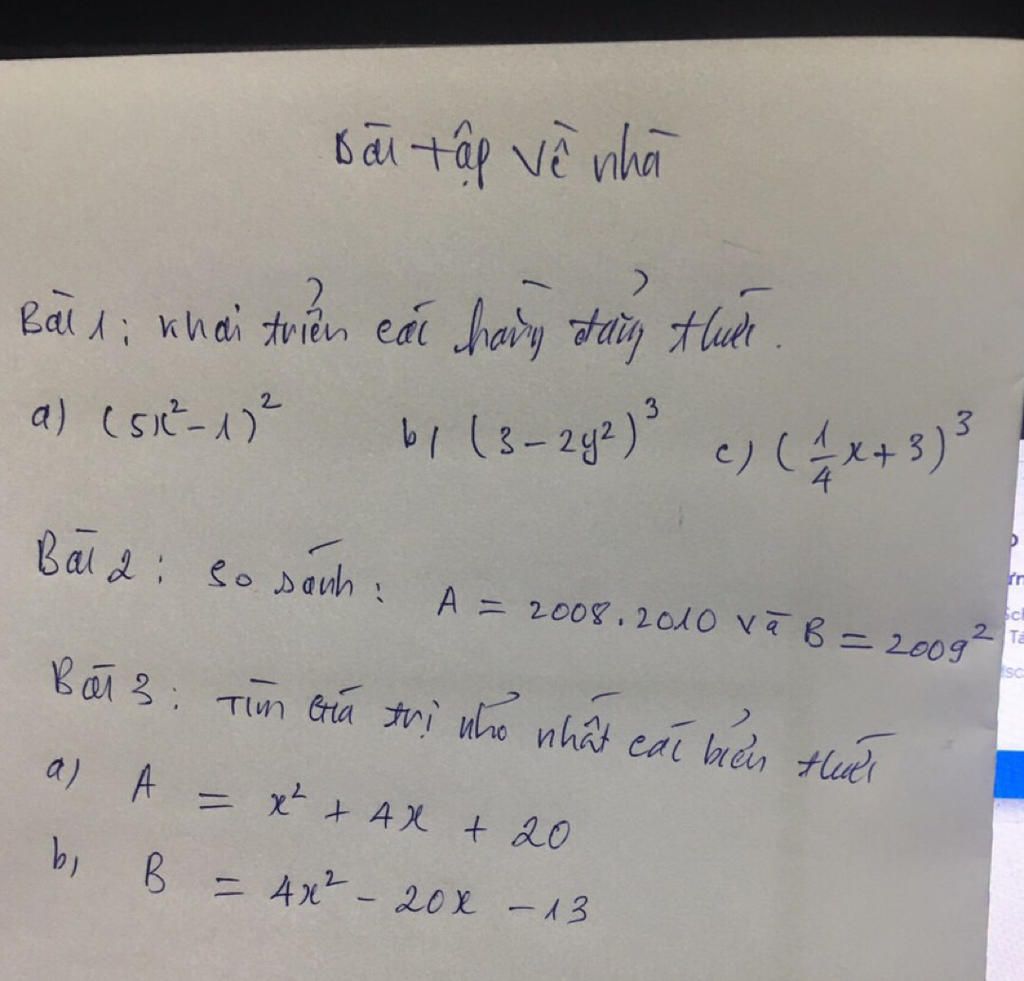 Bài tập về nhà
Bài 1: khai triển các hằng đẳng thức.
a) (5x²-1)² b) (3-2y²)³ c) (1/4x+3)³
Bài 2: so sánh: A = 2008.2010 và B = 2009²
Bài 3: Tìm Giá trị nhỏ nhất các biểu thức
a) A = x² + 4x + 20
b) B = 4x² - 20x - 13